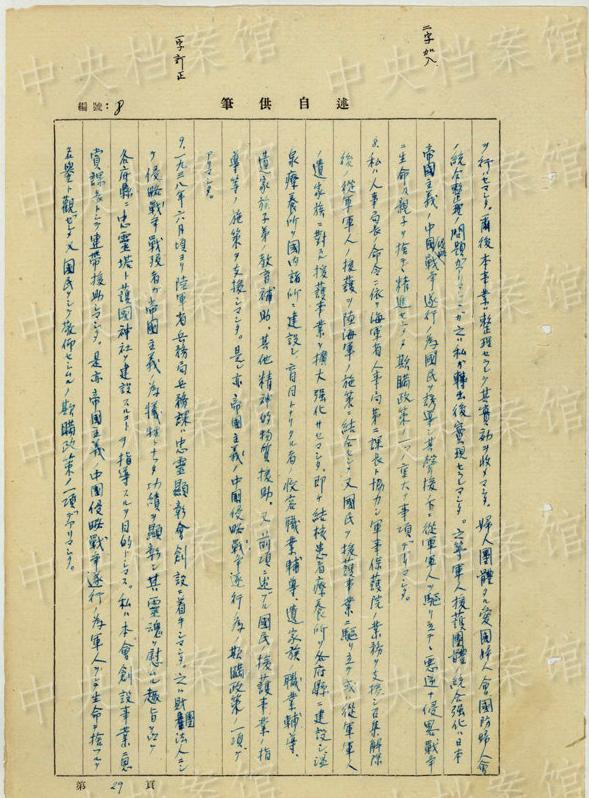 二字加入
一字訂正
編號：8
述自供筆
ヲ行ハセマシタ。爾後本事業ハ整理セラレテ其實効ヲ收メマシタ。婦人團體タル愛國婦人會國防婦人會
ノ統合整理ノ問題ガアリマシタガ之ハ私ガ轉出後實現セラレマシタ。之等軍人援護團體ノ統合強化ハ日本
帝國主義ノ中國侵略戰爭遂行ノ為國民ヲ誘導シ其餘後ノ
從軍軍人ヲ驅リ立テテ悪逆ナ侵略戰爭
ニ生命ヲ捨テ精進セシメタ欺瞞政策ノ一ツノ重大ナ事項デアリマシタ。
8.私ハ人事局長ノ命令ニ依リ海軍省人事局第二課長ト協力シ軍事保護院ノ業務ヲ支援シ召集解除
後ノ從軍軍人ノ援護ヲ陸海軍ノ施策ト結合セシメ又國民ヲ援護事業ニ驅リ立テ或ハ從軍軍人
ノ遺家族ニ對スル援護事業ヲ擴大強化サセマシタ。即チ結核患者療養所ヲ各府縣ニ建設シ溫
泉療養所ヲ國內諸所ニ建設シ盲目トナリタル者ノ收容職業輔導、遺家族ノ職業輔導、
遺家族子弟ノ教育補助、其他精神的物質援助、又前項ニ述ベタル國民ノ援護事業ノ指
導等ノ施策ヲ支援シマシタ。是レ亦帝國主義ノ中國侵略戰爭遂行ノ為ノ欺瞞政策ノ一項デ
アリマシタ。
9.一九三八年六月頃ヨリ陸軍省兵務局兵務課ハ忠靈顯彰會創設ニ着手シマシタ。之ハ財團法人ニシ
テ侵略戰爭戰歿者ガ帝國主義ノ為犠牲トナッタ功績ヲ顯彰シ其靈魂ヲ慰ムル趣旨ヲ以テ
各府縣ニ忠靈塔ト護國神社ヲ建設スルコトヲ指導スルヲ目的トシマス。私ハ本會創設事業ニ恩
賞課長トシテ連帶援助シマシタ。是亦帝國主義ノ中國侵略戰爭遂行ノ為軍人ヲシテ生命ヲ捨ツルヲ
名譽ト觀ゼシメ又國民ヲシテ敬仰セシムルノ欺瞞政策ノ一項デアリマシタ。
第29頁
中央档案馆